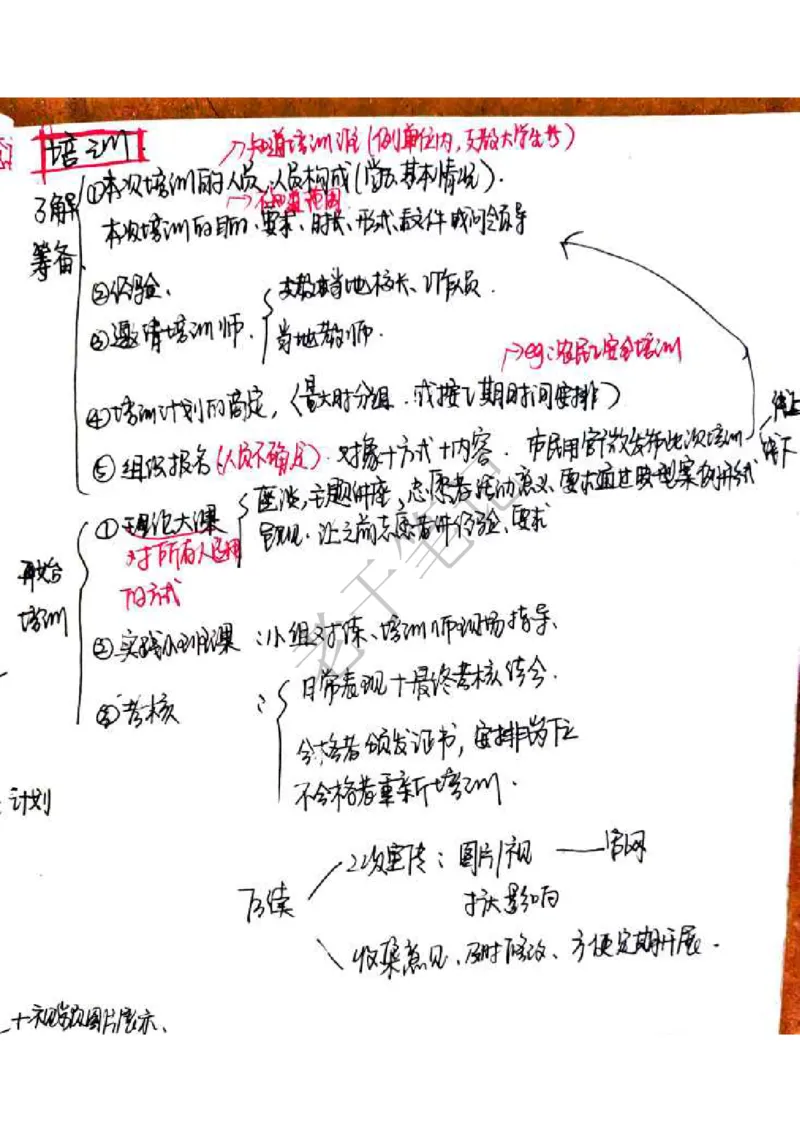 培训
→知道培训谁(例单位内,支教大学生等)
了解
筹备
①本次培训的人员,人员构成(学历基本情况).
→不知道范围
本次培训的目的、要求、时长、形式、看文件或问领导
②经验、
支教当地校长、工作人员.
③邀请培训师.
当地教师.
→eg:农民工安全培训
④培训计划的商定,(量大时分组.或按工期时间安排)
线上
线下
⑤组织报名(人员不确定).对象+方式+内容.市民用官微发布此次培训
开始
培训
①理论大课
对所有人适用
的方式
座谈,主题讲座,志愿者活动意义、要求通过典型案例形式
呈现.让之前志愿者讲经验、要求
②实践小班课:小组对练、培训师现场指导、
③考核:
日常表现+最终考核结合.
合格者颁发证书,安排岗位
不合格者重新培训.
计划
后续
二次宣传:图片/视——官网
扩大影响
收集意见、及时修改、方便定期开展.
+视频图片展示、
老干笔记